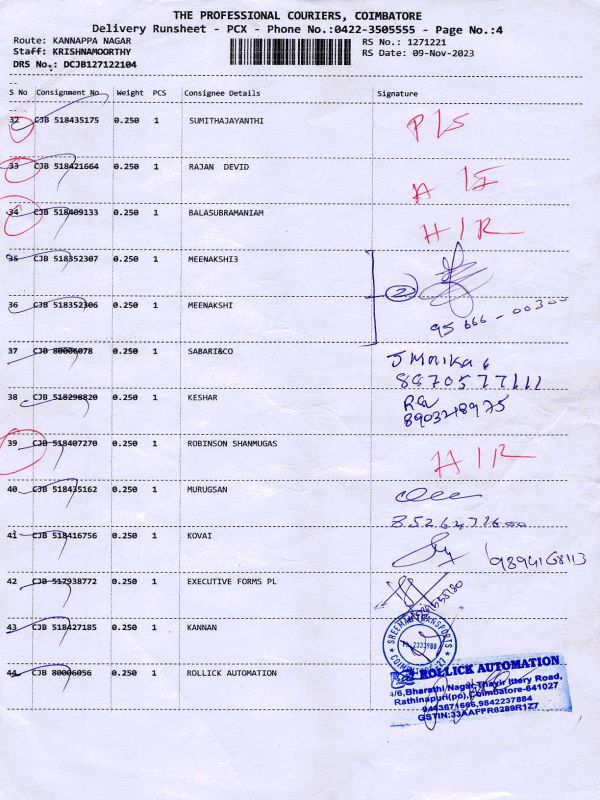 THE PROFESSIONAL COURIERS, COIMBATORE
Delivery Runsheet - PCX - Phone No.:0422-3505555 - Page No.:4
Route: KANNAPPA NAGAR RS No.: 1271221
Staff: KRISHNAMOORTHY RS Date: 09-Nov-2023
DRS No.: DCJB127122104
S No Consignment No Weight PCS Consignee Details Signature
32 CJB 518435175 0.250 1 SUMITHAJAYANTHI P/S
33 CJB 518421664 0.250 1 RAJAN DEVID
34 CJB 518409133 0.250 1 BALASUBRAMANIAM H/R
35 CJB 518352307 0.250 1 MEENAKSHI3
36 CJB 518352306 0.250 1 MEENAKSHI 2
95 666 - 00300
37 CJB 80006078 0.250 1 SABARI&CO
8870577111
38 CJB 518298820 0.250 1 KESHAR
8903218975
39 CJB 518407270 0.250 1 ROBINSON SHANMUGAS H/R
40 CJB 518435162 0.250 1 MURUGSAN
41 CJB 518416756 0.250 1 KOVAI 9894168113
42 CJB 517938772 0.250 1 EXECUTIVE FORMS PL
43 CJB 518427185 0.250 1 KANNAN
44 CJB 80006056 0.250 1 ROLLICK AUTOMATION
TRANSPORTS
COIMBATORE-27
ROLLICK AUTOMATION
4/6,Bharathi Nagar,Thayir Ittery Road,
Rathinapuri(po),Coimbatore-641027
9443671666,9842237884
GSTIN:33AAFFR8289R1Z7